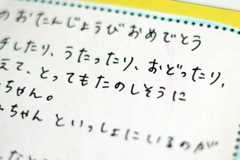 のおたんじょうびおめでとう
チしたり、うたったり、おどったり、
えて、とってもたのしそうに
ちゃん。
ちゃんといっしょにいるのが